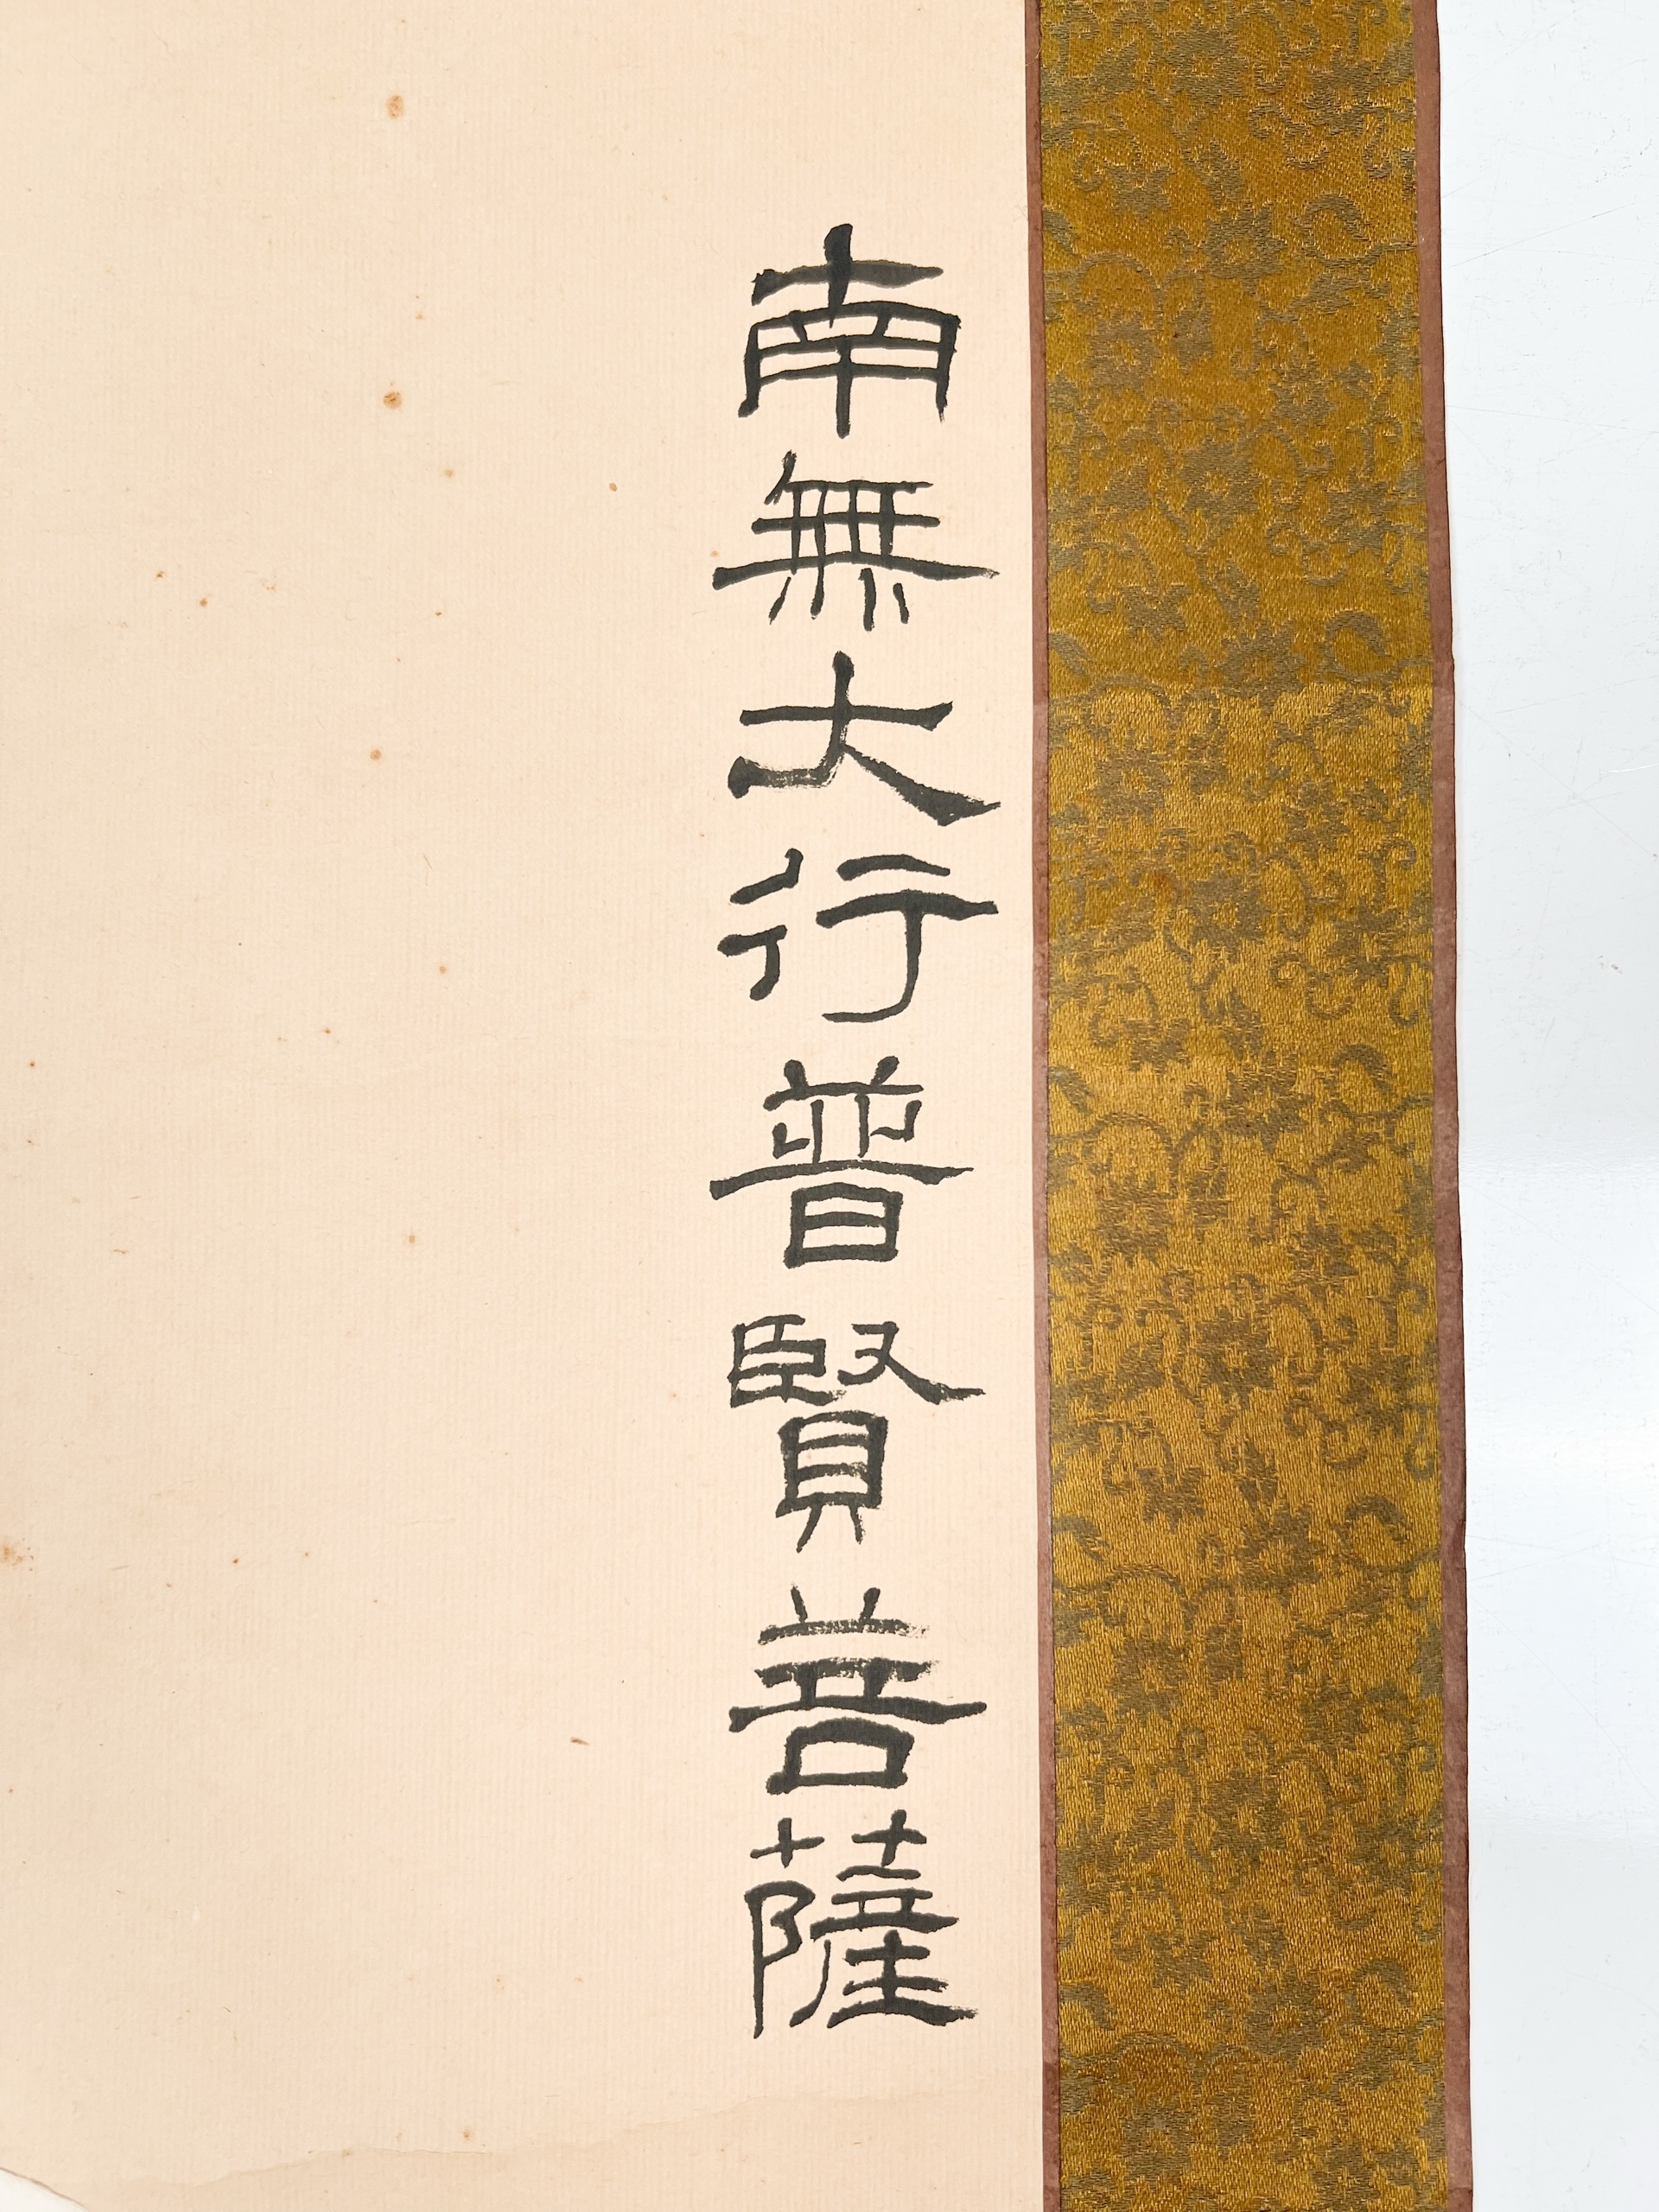 南無大行普賢菩薩